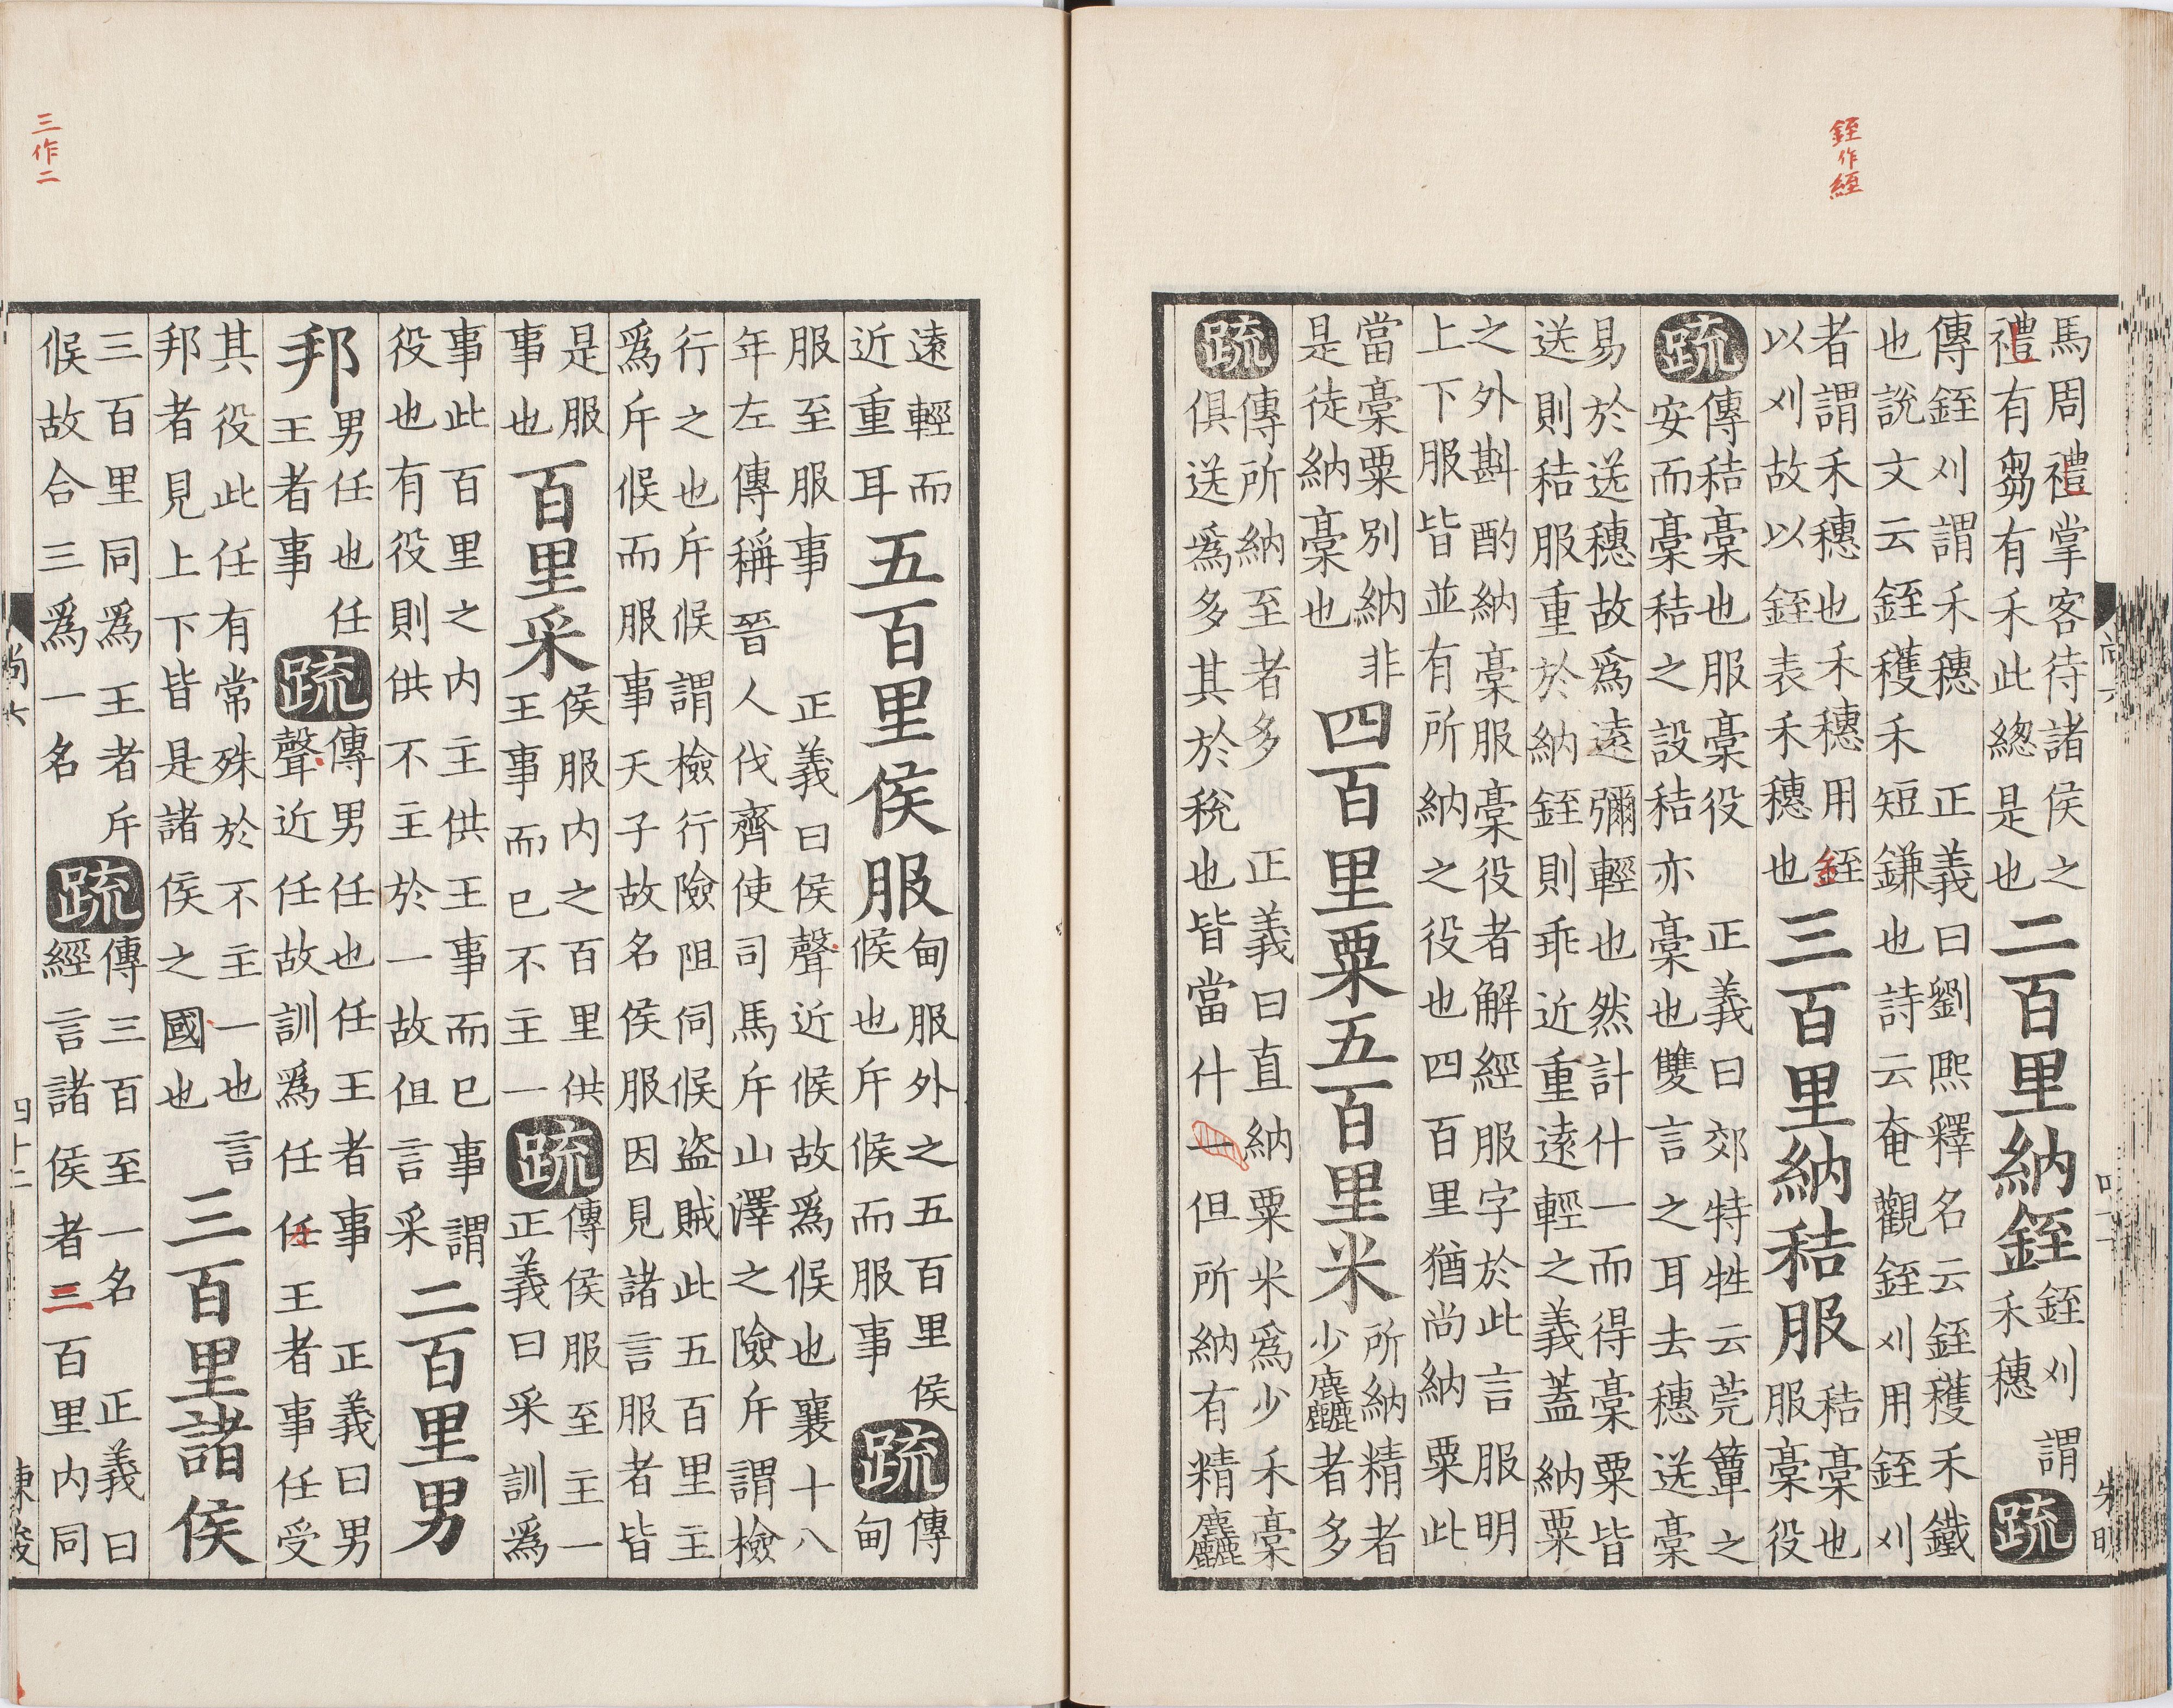 銍作經
馬周禮掌客待諸侯之
禮有芻有禾此緫是也
二百里納銍
銍刈謂
禾穗
疏
傳銍刈謂禾穗　正義曰劉熙釋名云銍穫禾鐵
也說文云銍穫禾短鎌也詩云奄觀銍刈用銍刈
者謂禾穗也禾穗用銍
以刈故以銍表禾穗也
三百里納秸服
秸稾也
服稾役
疏
傳秸稾也服稾役　正義曰郊特牲云莞簟之
安而稾秸之設秸亦稾也雙言之耳去穗送稾
易於送穗故爲遠彌輕也然計什一而得稾粟皆
送則秸服重於納銍則乖近重遠輕之義蓋納粟
之外斟酌納稾服稾役者解經服字於此言服明
上下服皆並有所納之役也四百里猶尚納粟此
當稾粟別納非
是徒納稾也
四百里粟五百里米
所納精者
少麤者多
疏
傳所納至者多　正義曰直納粟米爲少禾稾
俱送爲多其於稅也皆當什一但所納有精麤
遠輕而
近重耳
五百里侯服
甸服外之五百里侯
候也斥候而服事
疏
傳
甸
服至服事　正義曰侯聲近候故爲候也襄十八
年左傳稱晉人伐齊使司馬斥山澤之險斥謂檢
行之也斥候謂檢行險阻伺候盜賊此五百里主
爲斥候而服事天子故名侯服因見諸言服者皆
是服
事也
百里采
侯服内之百里供
王事而已不主一
疏
傳侯服至主一
正義曰采訓爲
事此百里之内主供王事而已事謂
役也有役則供不主於一故但言采
二百里男
邦
男任也任
王者事
疏
傳男任也任王者事　正義曰男
聲近任故訓爲任任王者事任受
其役此任有常殊於不主一也言
邦者見上下皆是諸侯之國也
三百里諸侯
三百里同爲王者斥
候故合三爲一名
疏
傳三百至一名　正義曰
經言諸侯者三百里内同
尚六
四十二
三作二